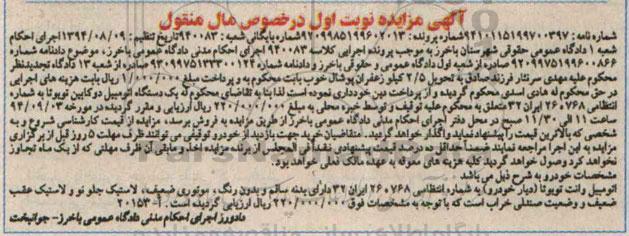 آگهی مزایده نوبت اول درخصوص مال منقول
شماره نامه: ۹۴۱۰۱۱۵۱۹۹۷۰۰۳۹۷ شماره پرونده: ۹۲۰۹۹۸۵۱۹۹۶۰۲۰۱۳ شماره بایگانی شعبه: ۹۴۰۰۸۳ تاریخ تنظیم: ۱۳۹۴/۰۸/۰۹ اجرای احکام
شعبه ۱ دادگاه عمومی حقوقی شهرستان باخرز به موجب پرونده اجرایی کلاسه ۹۴۰۰۸۳ اجرای احکام مدنی دادگاه عمومی باخرز، موضوع دادنامه شماره
۹۲۰۹۹۷۵۱۹۹۶۰۰۸۶۶ صادره از شعبه اول دادگاه عمومی و حقوقی باخرز و دادنامه شماره ۹۳۰۹۹۷۵۱۳۳۳۰۰۱۲۴ صادره از شعبه ۱۳ دادگاه تجدیدنظر
محکوم علیه مهدی سرنثار فرزند صادق به تحویل ۲/۵ کیلو زعفران پوشال خوب بابت محکوم به و پرداخت مبلغ ریال بابت هزینه های اجرایی
در حق محکوم له هادی اسدی محکوم گردیده و از پرداخت دین خودداری نموده است لذا بنا به تقاضای محکوم له یک دستگاه اتومبیل دوکابین تویوتا به شماره
انتظامی ۷۶۸ ۲۶۰ ایران ۳۲ متعلق به محکوم علیه توقیف و توسط خبره محلی به مبلغ ۲۲۰/۰۰۰/۰۰۰ ریال ارزیابی و مقرر گردید در مورخه ۹۴/۰۹/۰۳
ساعت ۱۱ الی ۱۱/۳۰ صبح در محل دفتر اجرای احکام مدنی دادگاه عمومی باخرز از طریق مزایده به فروش برسد، مزایده از قیمت کارشناسی شروع و به
شخصی که بالاترین قیمت را پیشنهاد نماید واگذار خواهد گردید. متقاضیان خرید جهت بازدید از خودرو توقیفی می توانند ظرف مهلت ۵ روز قبل از برگزاری
مزایده به این اجرا مراجعه نمایند ضمنا حداقل ده درصد قیمت پیشنهادی نقدا فی المجلس از برنده مزایده اخذ و مابقی آن ظرف مهلتی که از یک ماه تجاوز
نخواهد کرد وصول خواهد گردید کلیه هزینه های معوقه به عهده مالک فعلی خواهد بود.
مشخصات خودرو به شرح ذیل می باشد
اتومبیل وانت تویوتا (دیار خودرو) به شماره انتظامی ۷۶۸ ۲۶۰ ایران ۳۲ دارای بدنه سالم و بدون رنگ، موتوری ضعیف، لاستیک جلو نو و لاستیک عقب
ضعیف و وضعیت صندلی خراب است که با توجه به مشخصات فوق ۲۲۰/۰۰۰/۰۰۰ ریال ارزیابی گردیده است. آ-۲۰۱۵۳
دادورز اجرای احکام مدنی دادگاه عمومی باخرز- جوانبخت